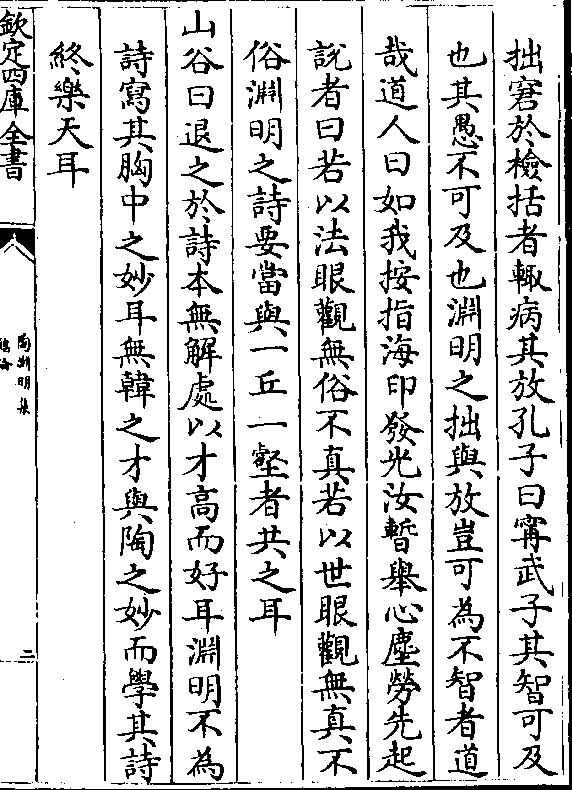 拙窘於檢括者輙病其放孔子曰甯武子其智可及
也其愚不可及也淵明之拙與放豈可為不智者道
哉道人曰如我按指海印發光汝暫舉心塵勞先起
說者曰若以法眼觀無俗不真若以世眼觀無真不
俗淵明之詩要當與一丘一壑者共之耳
山谷曰退之於詩本無解處以才高而好耳淵明不為
詩寫其胸中之妙耳無韓之才與陶之妙而學其詩
終樂天耳
欽定四庫全書
陶淵明集
總論
二